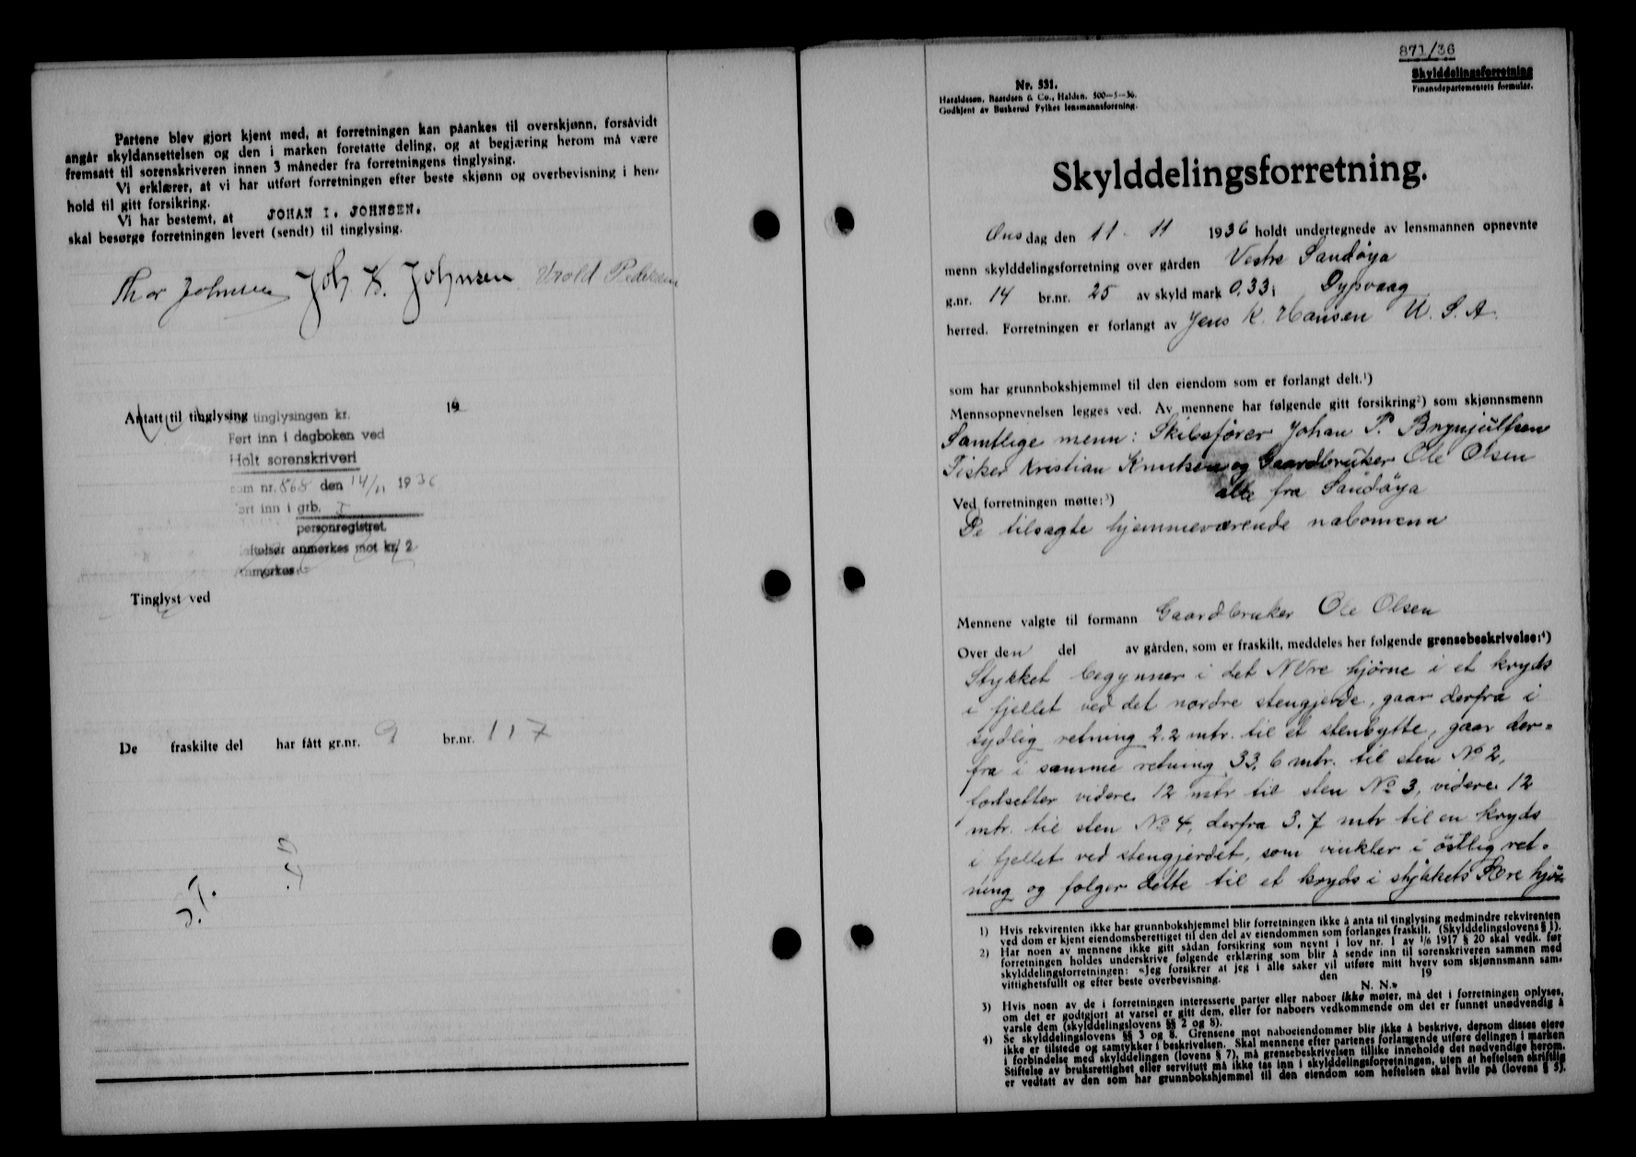 Partene blev gjort kjent med, at forretningen kan påankes til overskjønn, forsåvidt
angår skyldansettelsen og den i marken foretatte deling, og at begjæring herom må være
fremsatt til sorenskriveren innen 3 måneder fra forretningens tinglysing.
Vi erklærer, at vi har utført forretningen efter beste skjønn og overbevisning i hen-
hold til gitt forsikring.
Vi har bestemt, at JOHAN I. JOHNSEN.
skal besørge forretningen levert (sendt) til tinglysing.
Thor Johnsen Joh. K. Johnsen Pedersen
Antatt til tinglysing tinglysingen kr. 19
Ført inn i dagboken ved
Holt sorenskriveri
som nr. 868 den 14/11 1936
ført inn i grb. I
personregistret.
anmerkes mot kr. 2
Anmerkes
Tinglyst ved
De fraskilte del har fått gr.nr. 9 br.nr. 117
871/36
Skylddelingsforretning
Finansdepartementets formular.
Nr. 531.
Haraldssen, Baardsen & Co., Halden. 500—5—36.
Godkjent av Buskerud Fylkes lensmannsforening.
Skylddelingsforretning.
Onsdag den 11 - 11 1936 holdt undertegnede av lensmannen opnevnte
menn skylddelingsforretning over gården Vestre Sandøya
g.nr. 14 br.nr. 25 av skyld mark 0,33 i Dypvaag
herred. Forretningen er forlangt av Jens K. Hansen U. S. A.
som har grunnbokshjemmel til den eiendom som er forlangt delt.¹)
Mennsopnevnelsen legges ved. Av mennene har følgende gitt forsikring²) som skjønnsmenn
Samtlige menn: Skibsfører Johan P. Brynjulfsen
Fisker Kristian Knutsen og Gaardbruker Ole Olsen
alle fra Sandøya
Ved forretningen møtte:³)
De tilsagte hjemmeværende nabomenn
Mennene valgte til formann Gaardbruker Ole Olsen
Over den del av gården, som er fraskilt, meddeles her følgende grensebeskrivelse:⁴)
Stykket begynner i det NVre hjørne i et kryds
i fjellet ved det nordre stengjerde, gaar derfra i
sydlig retning 2.2 mtr. til et stenbytte, gaar der-
fra i samme retning 33,6 mtr. til sten No 2,
fortsetter videre 12 mtr til sten No 3, videre 12
mtr. til sten No 4, derfra 3.7 mtr til en kryds
i fjellet ved stengjerdet, som vinkler i østlig ret-
ning og følger dette til et kryds i stykkets hjør
1) Hvis rekvirenten ikke har grunnbokshjemmel blir forretningen ikke å anta til tinglysing medmindre rekvirenten
ved dom er kjent eiendomsberettiget til den del av eiendommen som forlanges fraskilt. (Skylddelingslovens § 1).
2) Har noen av mennene ikke gitt sådan forsikring som nevnt i lov nr. 1 av 1/6 1917 § 20 skal vedk. før
forretningen holdes underskrive følgende erklæring som blir å sende inn til sorenskriveren sammen med
skylddelingsforretningen: «Jeg forsikrer at jeg i alle saker vil utføre mitt hverv som skjønnsmann sam-
vittighetsfullt og efter beste overbevisning. den 19
N. N.»
3) Hvis noen av de i forretningen interesserte parter eller naboer ikke møter, må det i forretningen oplyses,
om det er godtgjort at varsel er gitt dem, eller for naboers vedkommende om det er funnet unødvendig å
varsle dem (skylddelingslovens §§ 2 og 8).
4) Se skylddelingslovens §§ 3 og 8. Grensene mot naboeiendommer blir ikke å beskrive, dersom disses eiere
ikke er tilstede og samtykker i beskrivelsen. Skal mennene efter partenes forlangende utføre delingen i marken
i forbindelse med skylddelingen (lovens § 7), må grensebeskrivelsen tillike inneholde det nødvendige herom.
Stiftelse av bruksrettighet eller servitutt må ikke tas inn i skylddelingsforretningen, uten at heftelsen skriftlig
er vedtatt av den som har grunnbokshjemmel til den eiendom som heftelsen skal hvile på (lovens § 5).